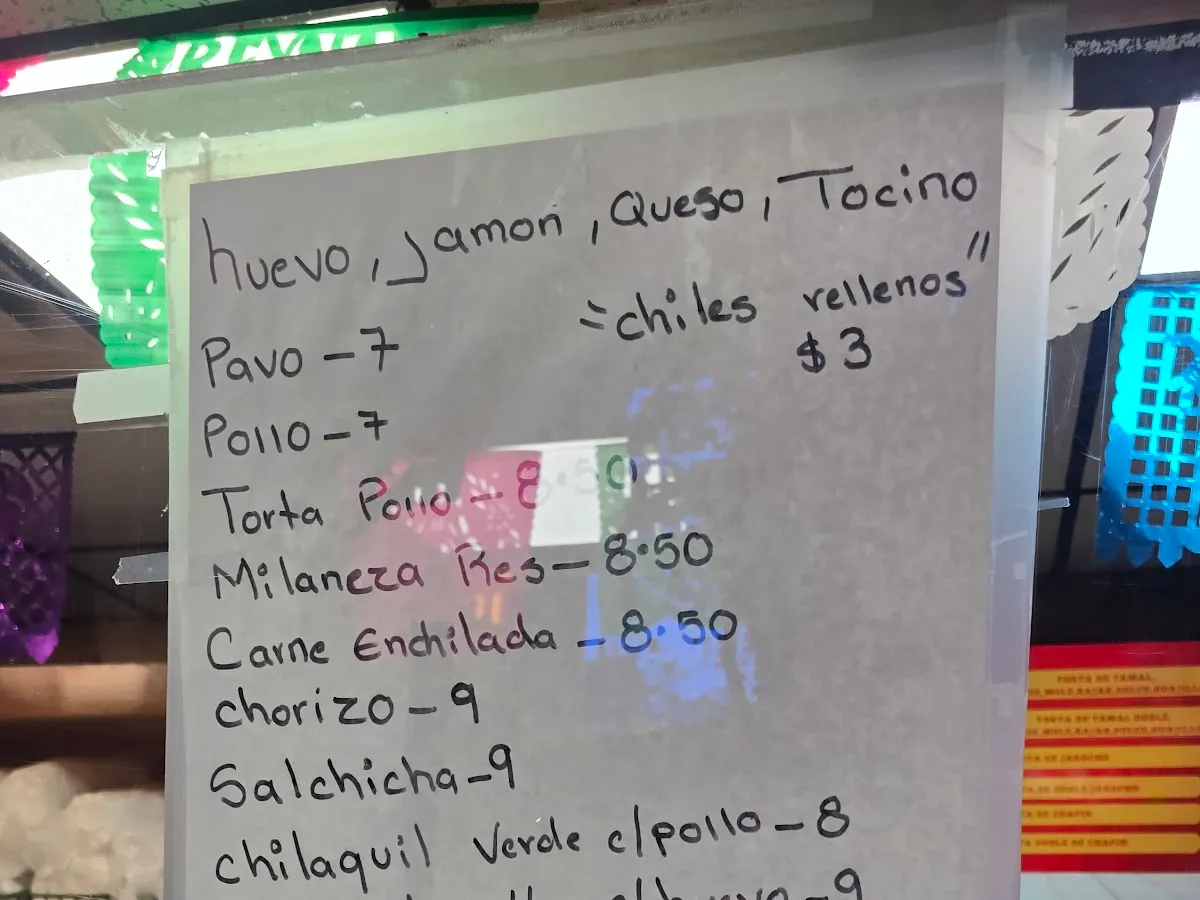 huevo, Jamon, Queso, Tocino
"chiles rellenos"
$3
Pavo - 7
Pollo - 7
Torta Pollo - 8.50
Milaneza Res - 8.50
Carne Enchilada - 8.50
chorizo - 9
Salchicha - 9
chilaquil Verde c/pollo - 8
c/huevo - 9
TORTA DE TAMAL,
TORTA DE TAMAL DOBLE,